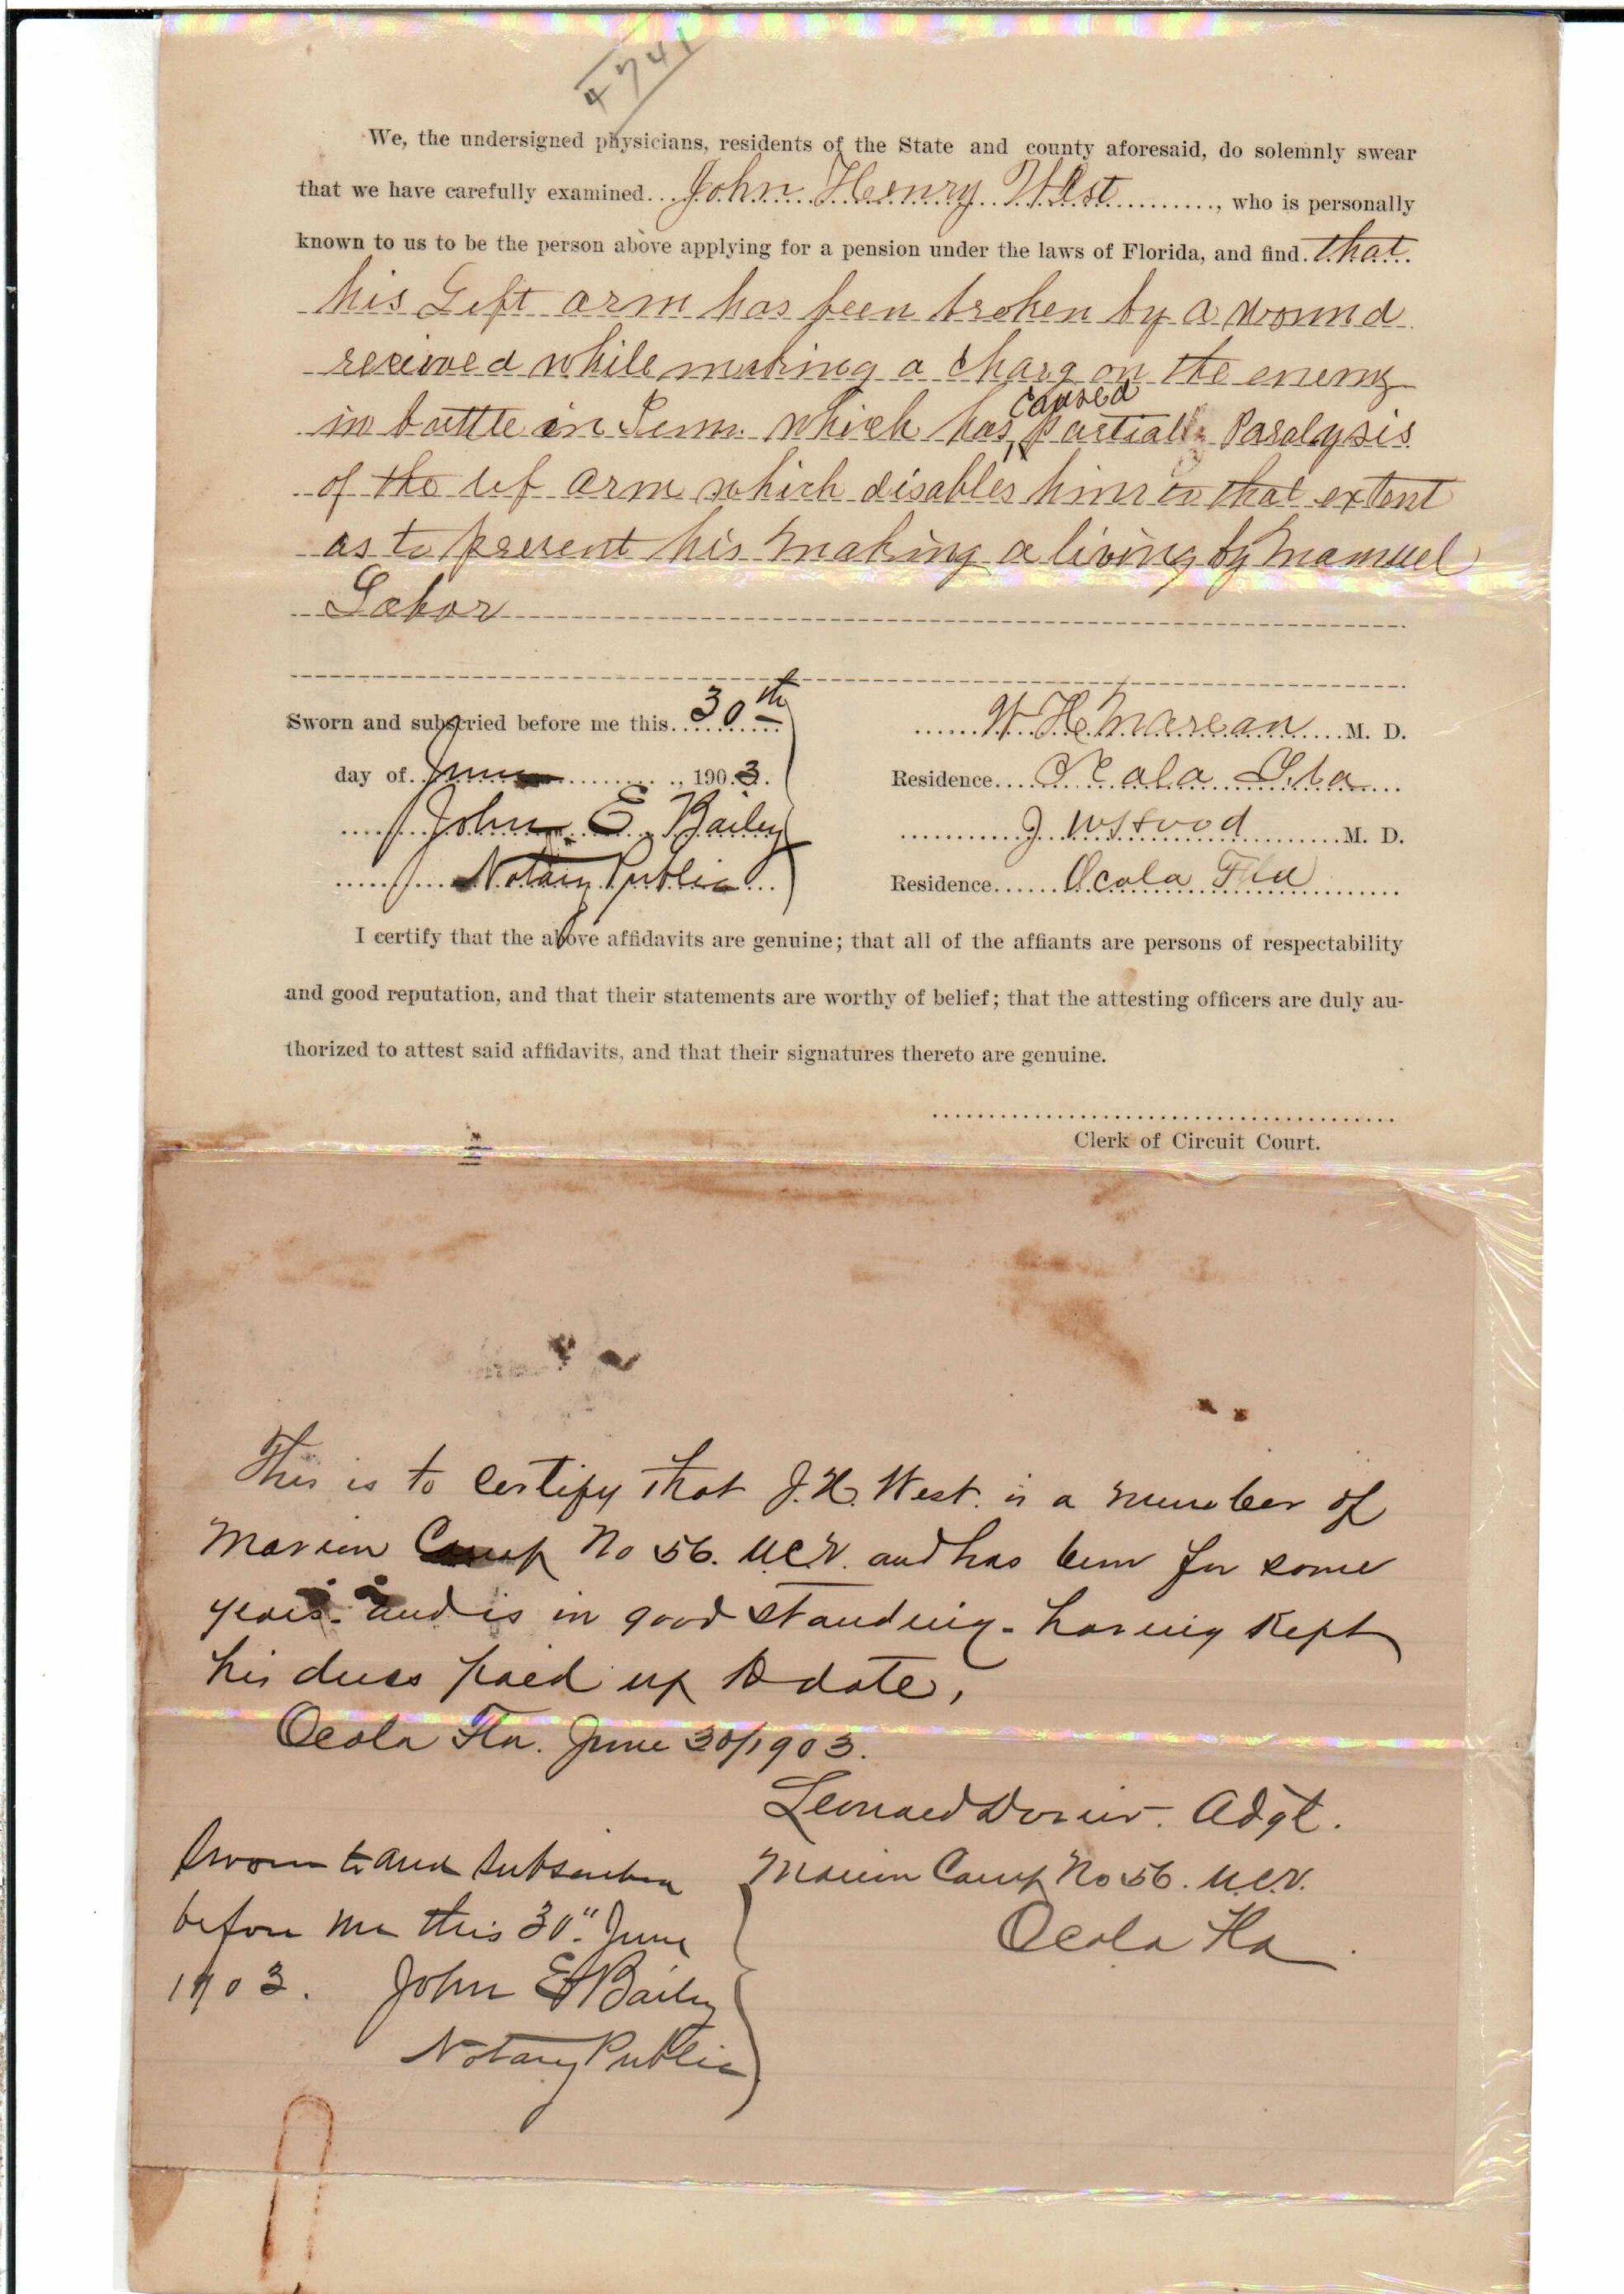 4741
We, the undersigned physicians, residents of the State and county aforesaid, do solemnly swear
that we have carefully examined John Henry West, who is personally
known to us to be the person above applying for a pension under the laws of Florida, and find that
his Left arm has been broken by a wound
recieved while making a charg on the enemy
in battle in Tenn. which has caused partial Paralysis
of the lef arm which disables him to that extent
as to prevent his making a living by manuel
Labor
Sworn and subscried before me this 30th
day of June, 1903.
John E. Bailey
Notary Public
W H M. D.
Residence Ocala Fla
J. M. D.
Residence Ocala Fla
I certify that the above affidavits are genuine; that all of the affiants are persons of respectability
and good reputation, and that their statements are worthy of belief; that the attesting officers are duly au-
thorized to attest said affidavits, and that their signatures thereto are genuine.
Clerk of Circuit Court.
This is to certify that J. H. West. is a member of
Marion Camp No 56. U.C.V. and has been for some
years. and is in good standing - having kept
his dues paid up to date,
Ocala Fla. June 30/1903.
Leonard Adgt.
Marion Camp No 56. U.C.V.
Ocala Fla
Sworn to and subscribed
before me this 30" June
1903. John E Bailey
Notary Public